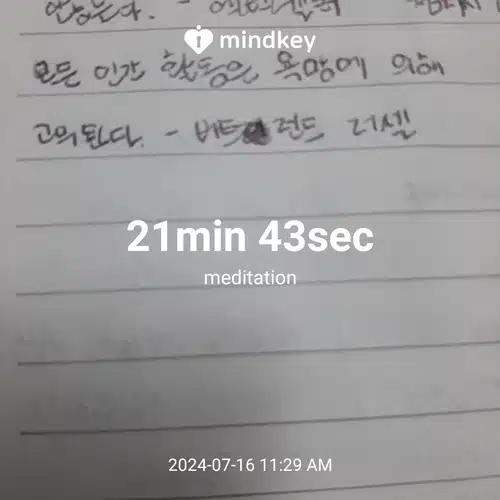 않는다. -
mindkey
모든 인간 활동은 욕망에 의해
고의된다. - 버트런드 러셀
21min 43sec
meditation
2024-07-16 11:29 AM